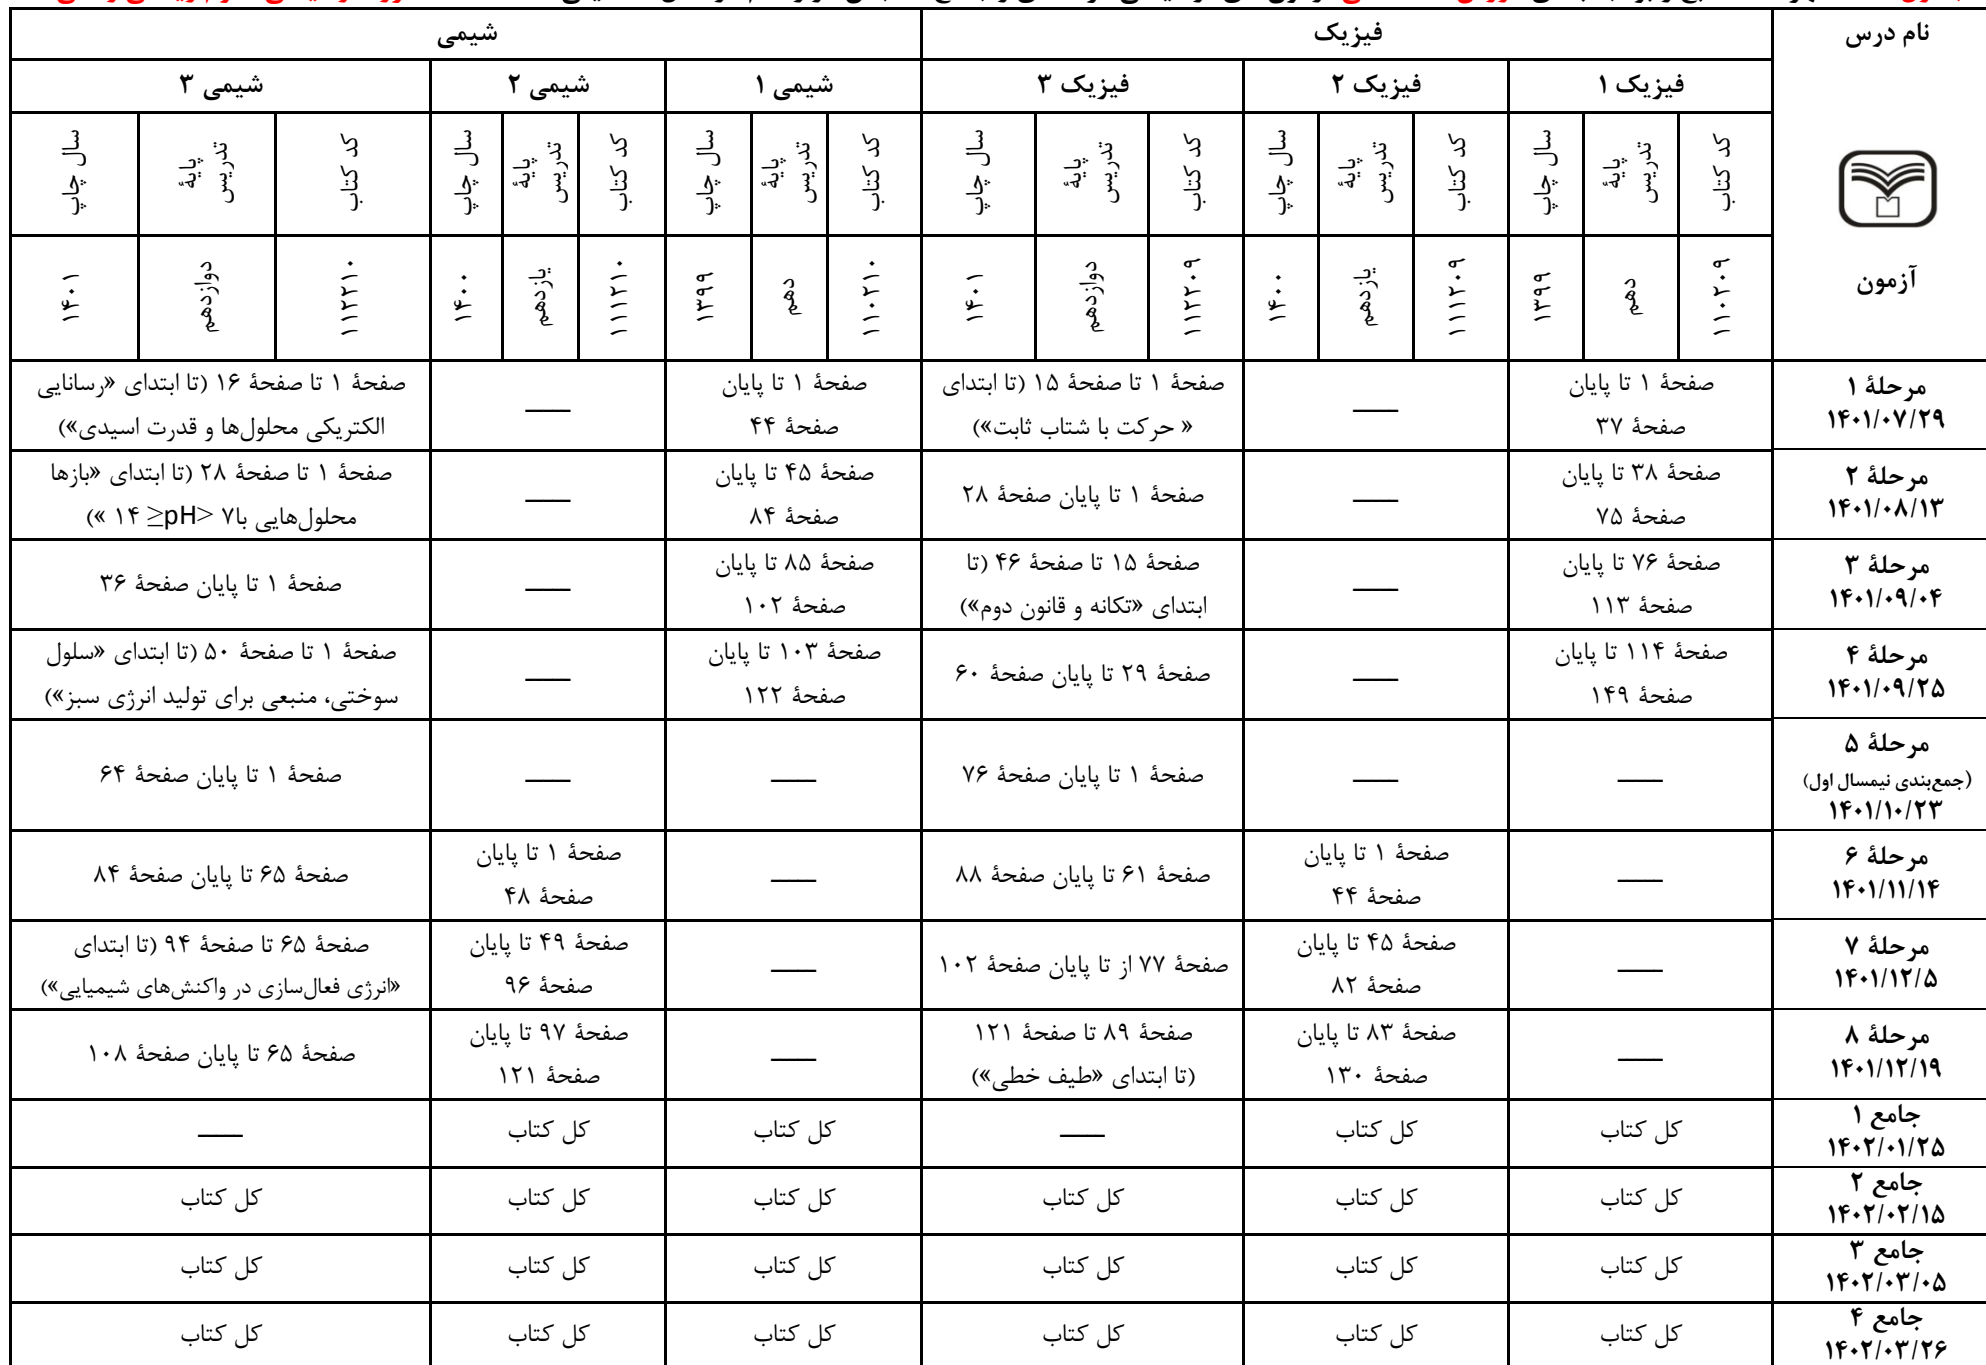 نام درس
فیزیک
شیمی
فیزیک ۱
فیزیک ۲
فیزیک ۳
شیمی ۱
شیمی ۲
شیمی ۳
کد کتاب
پایهٔ تدریس
سال چاپ
کد کتاب
پایهٔ تدریس
سال چاپ
کد کتاب
پایهٔ تدریس
سال چاپ
کد کتاب
پایهٔ تدریس
سال چاپ
کد کتاب
پایهٔ تدریس
سال چاپ
کد کتاب
پایهٔ تدریس
سال چاپ
آزمون
۱۱۰۲۰۹
دهم
۱۳۹۹
۱۱۱۲۰۹
یازدهم
۱۴۰۰
۱۱۲۲۰۹
دوازدهم
۱۴۰۱
۱۱۰۲۱۰
دهم
۱۳۹۹
۱۱۱۲۱۰
یازدهم
۱۴۰۰
۱۱۲۲۱۰
دوازدهم
۱۴۰۱
مرحلهٔ ۱
۱۴۰۱/۰۷/۲۹
صفحهٔ ۱ تا پایان
صفحهٔ ۳۷
——
صفحهٔ ۱ تا صفحهٔ ۱۵ (تا ابتدای
« حرکت با شتاب ثابت»)
صفحهٔ ۱ تا پایان
صفحهٔ ۴۴
——
صفحهٔ ۱ تا صفحهٔ ۱۶ (تا ابتدای «رسانایی
الکتریکی محلول‌ها و قدرت اسیدی»)
مرحلهٔ ۲
۱۴۰۱/۰۸/۱۳
صفحهٔ ۳۸ تا پایان
صفحهٔ ۷۵
——
صفحهٔ ۱ تا پایان صفحهٔ ۲۸
صفحهٔ ۴۵ تا پایان
صفحهٔ ۸۴
——
صفحهٔ ۱ تا صفحهٔ ۲۸ (تا ابتدای «بازها
محلول‌هایی با۷ <pH≤ ۱۴ »)
مرحلهٔ ۳
۱۴۰۱/۰۹/۰۴
صفحهٔ ۷۶ تا پایان
صفحهٔ ۱۱۳
——
صفحهٔ ۱۵ تا صفحهٔ ۴۶ (تا
ابتدای «تکانه و قانون دوم»)
صفحهٔ ۸۵ تا پایان
صفحهٔ ۱۰۲
——
صفحهٔ ۱ تا پایان صفحهٔ ۳۶
مرحلهٔ ۴
۱۴۰۱/۰۹/۲۵
صفحهٔ ۱۱۴ تا پایان
صفحهٔ ۱۴۹
——
صفحهٔ ۲۹ تا پایان صفحهٔ ۶۰
صفحهٔ ۱۰۳ تا پایان
صفحهٔ ۱۲۲
——
صفحهٔ ۱ تا صفحهٔ ۵۰ (تا ابتدای «سلول
سوختی، منبعی برای تولید انرژی سبز»)
مرحلهٔ ۵
(جمع‌بندی نیمسال اول)
۱۴۰۱/۱۰/۲۳
——
——
صفحهٔ ۱ تا پایان صفحهٔ ۷۶
——
——
صفحهٔ ۱ تا پایان صفحهٔ ۶۴
مرحلهٔ ۶
۱۴۰۱/۱۱/۱۴
——
صفحهٔ ۱ تا پایان
صفحهٔ ۴۴
صفحهٔ ۶۱ تا پایان صفحهٔ ۸۸
——
صفحهٔ ۱ تا پایان
صفحهٔ ۴۸
صفحهٔ ۶۵ تا پایان صفحهٔ ۸۴
مرحلهٔ ۷
۱۴۰۱/۱۲/۵
——
صفحهٔ ۴۵ تا پایان
صفحهٔ ۸۲
صفحهٔ ۷۷ از تا پایان صفحهٔ ۱۰۲
——
صفحهٔ ۴۹ تا پایان
صفحهٔ ۹۶
صفحهٔ ۶۵ تا صفحهٔ ۹۴ (تا ابتدای
«انرژی فعال‌سازی در واکنش‌های شیمیایی»)
مرحلهٔ ۸
۱۴۰۱/۱۲/۱۹
——
صفحهٔ ۸۳ تا پایان
صفحهٔ ۱۳۰
صفحهٔ ۸۹ تا صفحهٔ ۱۲۱
(تا ابتدای «طیف خطی»)
——
صفحهٔ ۹۷ تا پایان
صفحهٔ ۱۲۱
صفحهٔ ۶۵ تا پایان صفحهٔ ۱۰۸
جامع ۱
۱۴۰۲/۰۱/۲۵
کل کتاب
کل کتاب
——
کل کتاب
کل کتاب
——
جامع ۲
۱۴۰۲/۰۲/۱۵
کل کتاب
کل کتاب
کل کتاب
کل کتاب
کل کتاب
کل کتاب
جامع ۳
۱۴۰۲/۰۳/۰۵
کل کتاب
کل کتاب
کل کتاب
کل کتاب
کل کتاب
کل کتاب
جامع ۴
۱۴۰۲/۰۳/۲۶
کل کتاب
کل کتاب
کل کتاب
کل کتاب
کل کتاب
کل کتاب